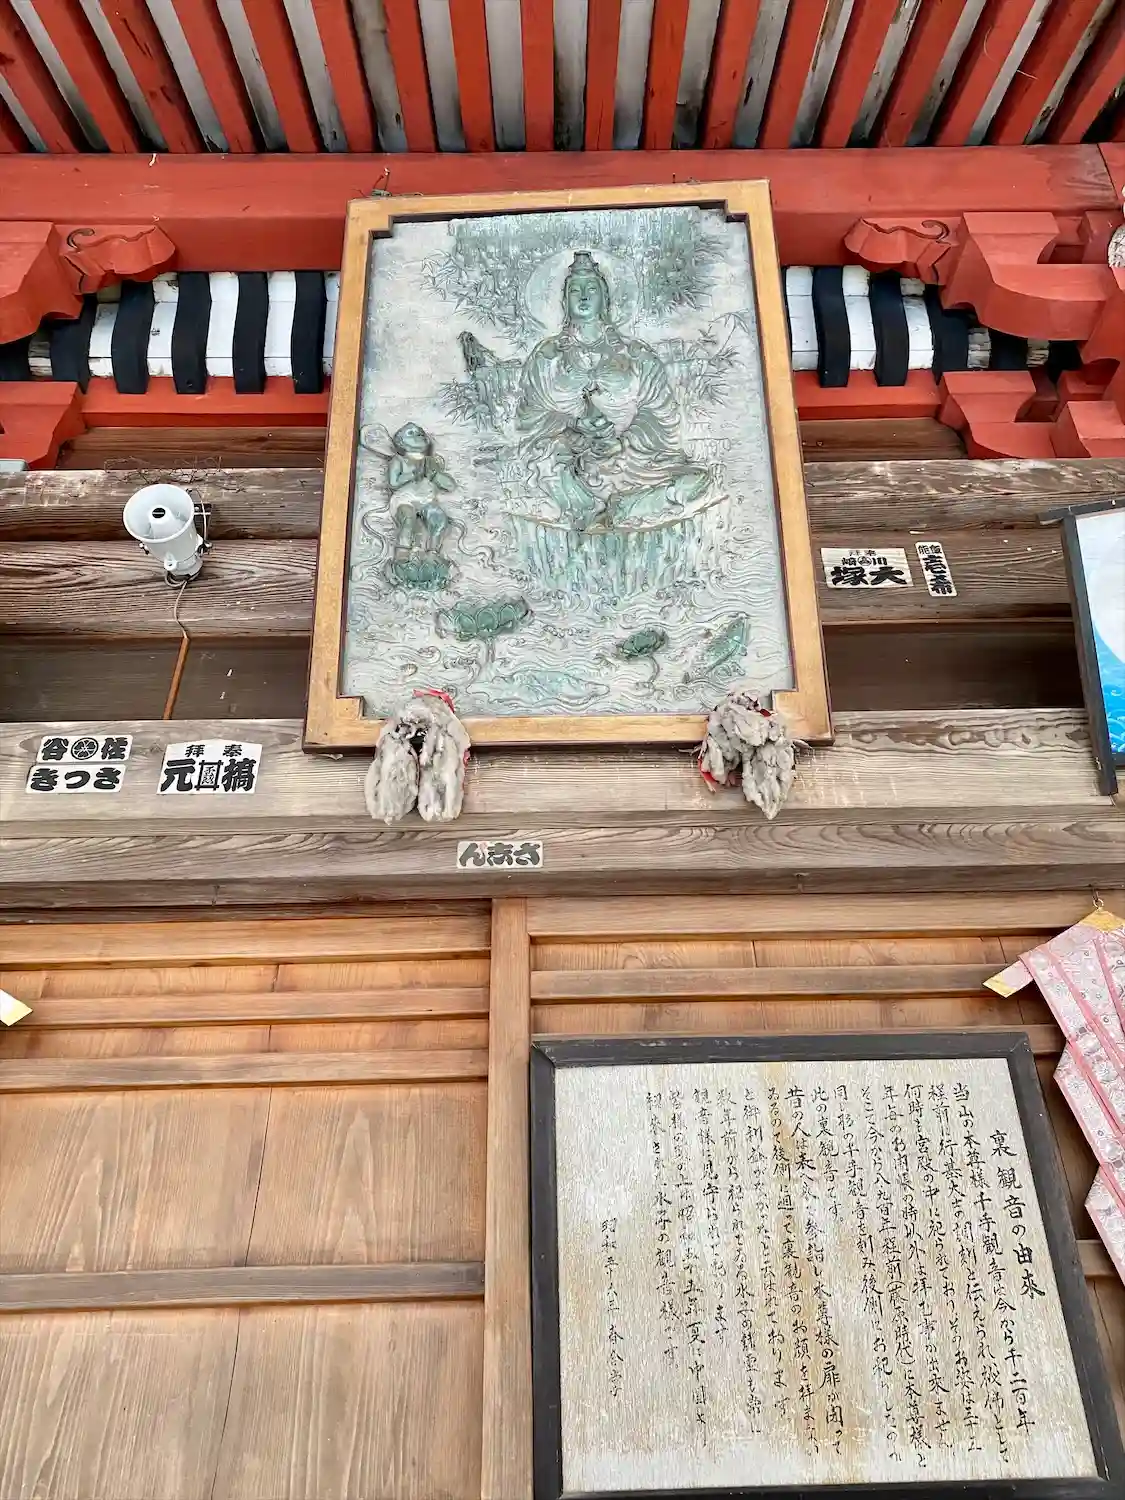 奉拝
大塚
川
飯能
壱希
佐
谷
さつき
奉拝
元
さださん
裏観音の由来
当山の本尊様千手観音は今から千二百年
程前に行基大士の調刻と伝えられ秘佛として
何時も宮殿の中に祀られておりそのお姿は三十三
年毎のお開帳の時以外は拝む事が出来ません
そこで今から八九百年程前(藤原時代)に本尊様と
同じ形の千手観音を刻み後側にお祀りしたのが
此の裏観音です。
昔の人は表へ 参詣し本尊様の扉が閉って
ゐるので後側に通って裏観音のお顔を拝まない
と御利益がなかったと云はれて居ります
数年前から祀られてゐる水子の諸霊も
観音様に見守られて居ります
皆様 昭和五十五年夏に中国より
水子の観音様です
昭和五十六年 春 合掌